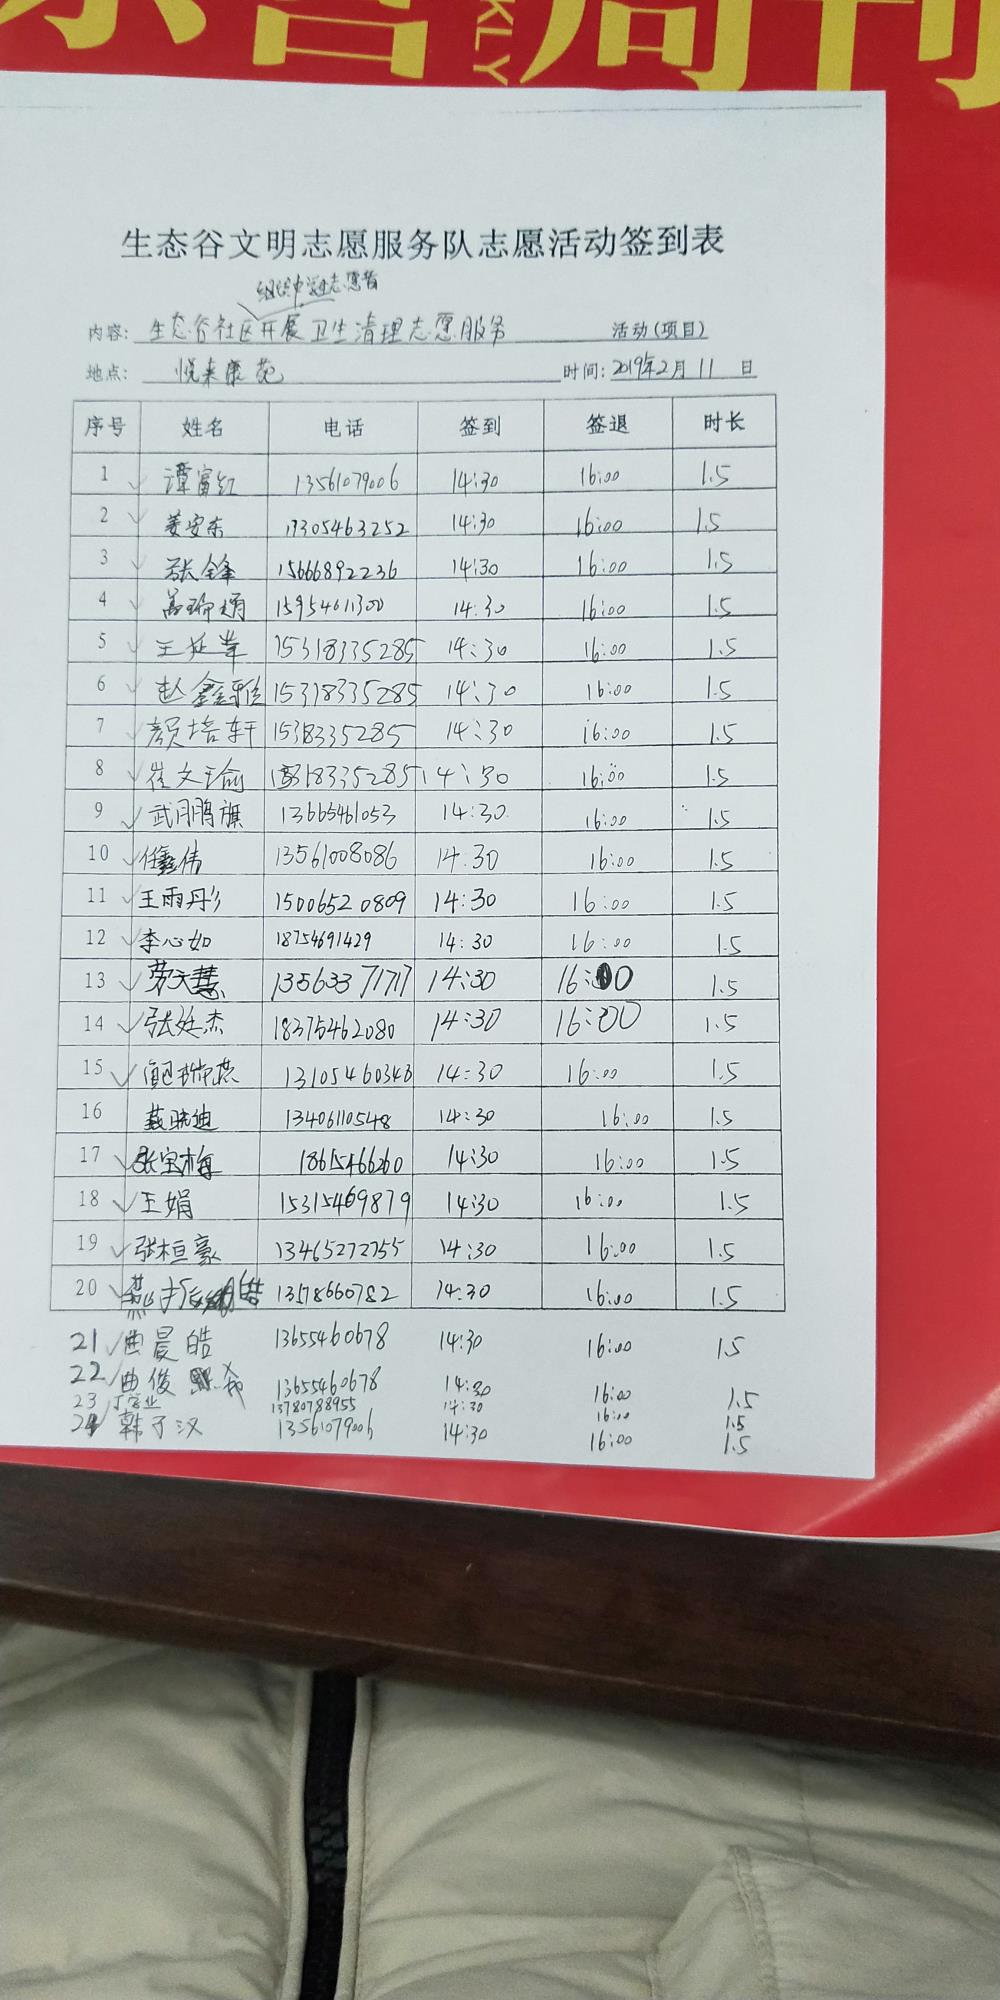 KLY 周刊
生态谷文明志愿服务队志愿活动签到表
组织中学生志愿者
内容: 生态谷社区开展卫生清理志愿服务 活动(项目)
地点: 悦来康苑 时间: 2019年2月11日
序号 姓名 电话 签到 签退 时长
1 谭富红 13561079006 14:30 16:00 1.5
2 姜安东 17305463252 14:30 16:00 1.5
3 张锋 15666892236 14:30 16:00 1.5
4 15954611300 14:30 16:00 1.5
5 王延苹 15318335285 14:30 16:00 1.5
6 赵鑫雅 15318335285 14:30 16:00 1.5
7 颜培轩 1538335285 14:30 16:00 1.5
8 崔文瑜 15318335285 14:30 16:00 1.5
9 武鹏旗 13665461053 14:30 16:00 1.5
10 任鑫伟 13561008086 14:30 16:00 1.5
11 王雨彤 15006520809 14:30 16:00 1.5
12 李心如 18754691429 14:30 16:00 1.5
13 劳天慧 13563371717 14:30 16:00 1.5
14 张廷杰 18375462080 14:30 16:00 1.5
15 13105460343 14:30 16:00 1.5
16 聂晓迪 13406110548 14:30 16:00 1.5
17 张宝梅 18615466260 14:30 16:00 1.5
18 王娟 15315469879 14:30 16:00 1.5
19 张桓豪 13465272755 14:30 16:00 1.5
20 13578660782 14:30 16:00 1.5
21 曲晨皓 13655460678 14:30 16:00 1.5
22 曲俊 13655460678 14:30 16:00 1.5
23 丁营业 13780788955 14:30 16:00 1.5
24 韩子汉 13561079006 14:30 16:00 1.5